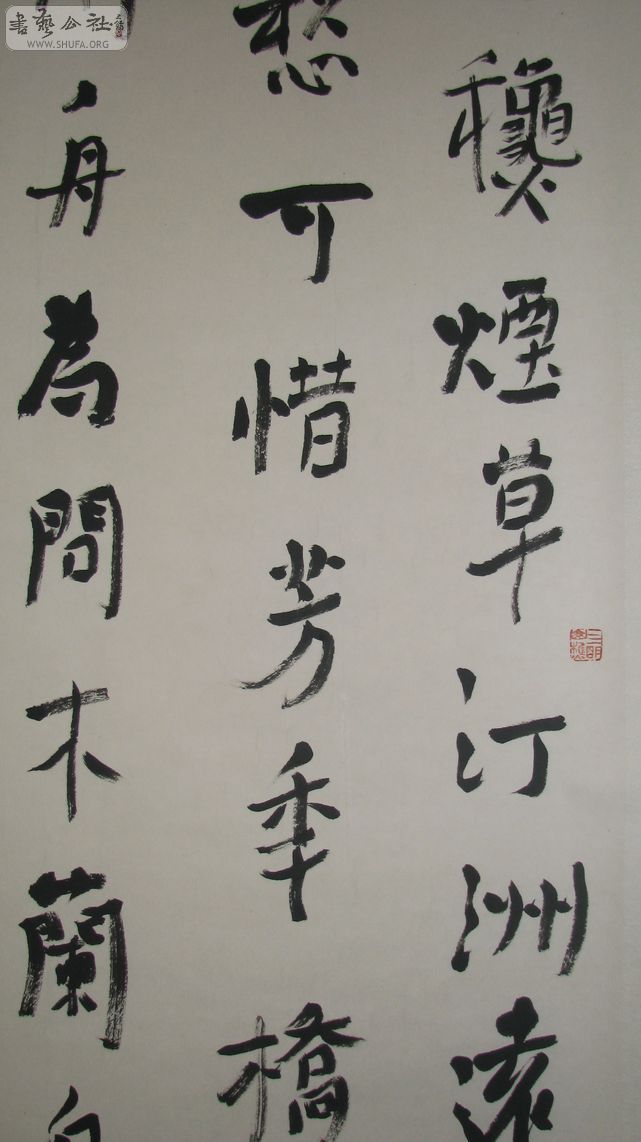 書藝公社
WWW.SHUFA.ORG
龝煙草汀洲遠
愁可惜芳秊橋
舟為問木蘭